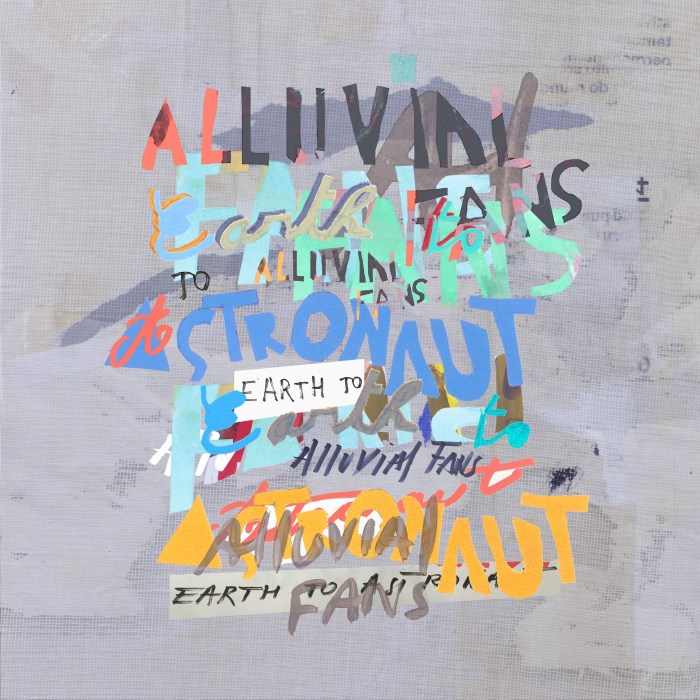 ALLUVIAL
FANS
Earth to
TO
ALLUVIAL
FANS
ASTRONAUT
EARTH TO
Earth to
Alluvial FANS
ASTRONAUT
Alluvial
EARTH TO ASTRONAUT
FANS